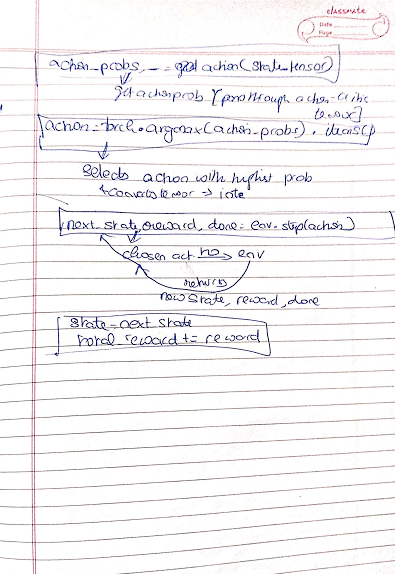 classmate
Date
Page
action_probs, _ = get action(state_tensor)
get action prob [pass through action-critic
tensor]
action = torch.argmax(action_probs).item()
Selects action with highest prob
+ converts tensor → int
next_state, reward, done = env.step(action)
chosen act to → env
returns
new state, reward, done
state = next state
total_reward += reward